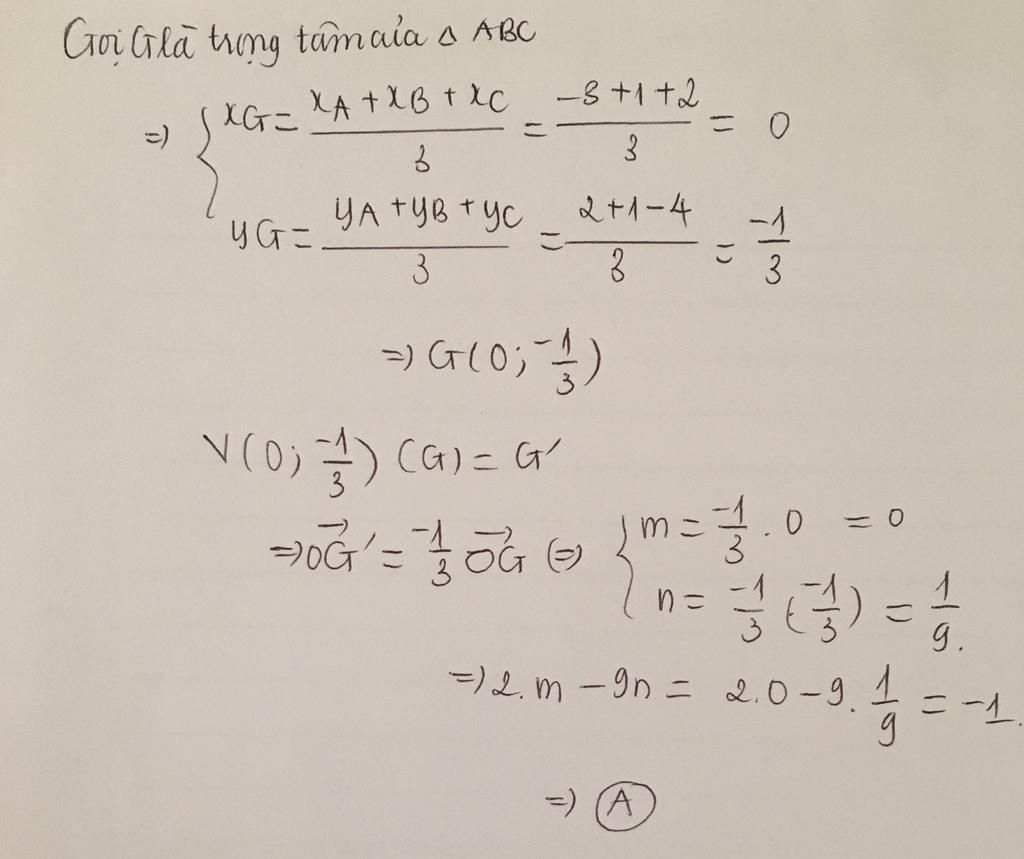 Gọi G là trọng tâm của Δ ABC
=> { xG = (xA + xB + xC)/3 = (-3+1+2)/3 = 0
yG = (yA + yB + yC)/3 = (2+1-4)/3 = -1/3
=> G(0; -1/3)
V(0; -1/3) (G) = G'
=> OG⃗' = -1/3 OG⃗ (=> { m = -1/3 . 0 = 0
n = -1/3 (-1/3) = 1/9.
=> 2.m - 9n = 2.0 - 9. 1/9 = -1.
=> A